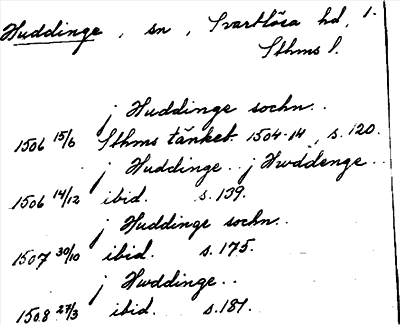 Huddinge, sn, Svartlösa hd, 1.
Sthms l.
j Huddinge sochn..
1506 15/6 Sthms tänket. 1504-14, s. 120.
j Huddinge.. j Hwddenge..
1506 14/12 ibid. s. 139.
j Huddinge sochn..
1507 30/10 ibid. s. 175.
j Hwddinge..
1508 27/3 ibid. s. 181.